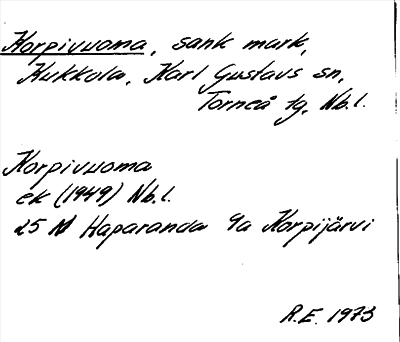 Korpivuoma, sank mark,
Kukkola, Karl Gustavs sn,
Torneå tg, Nb.l.
Korpivuoma
ek (1949) Nb.l.
25 N Haparanda 9a Korpijärvi
R.E. 1973